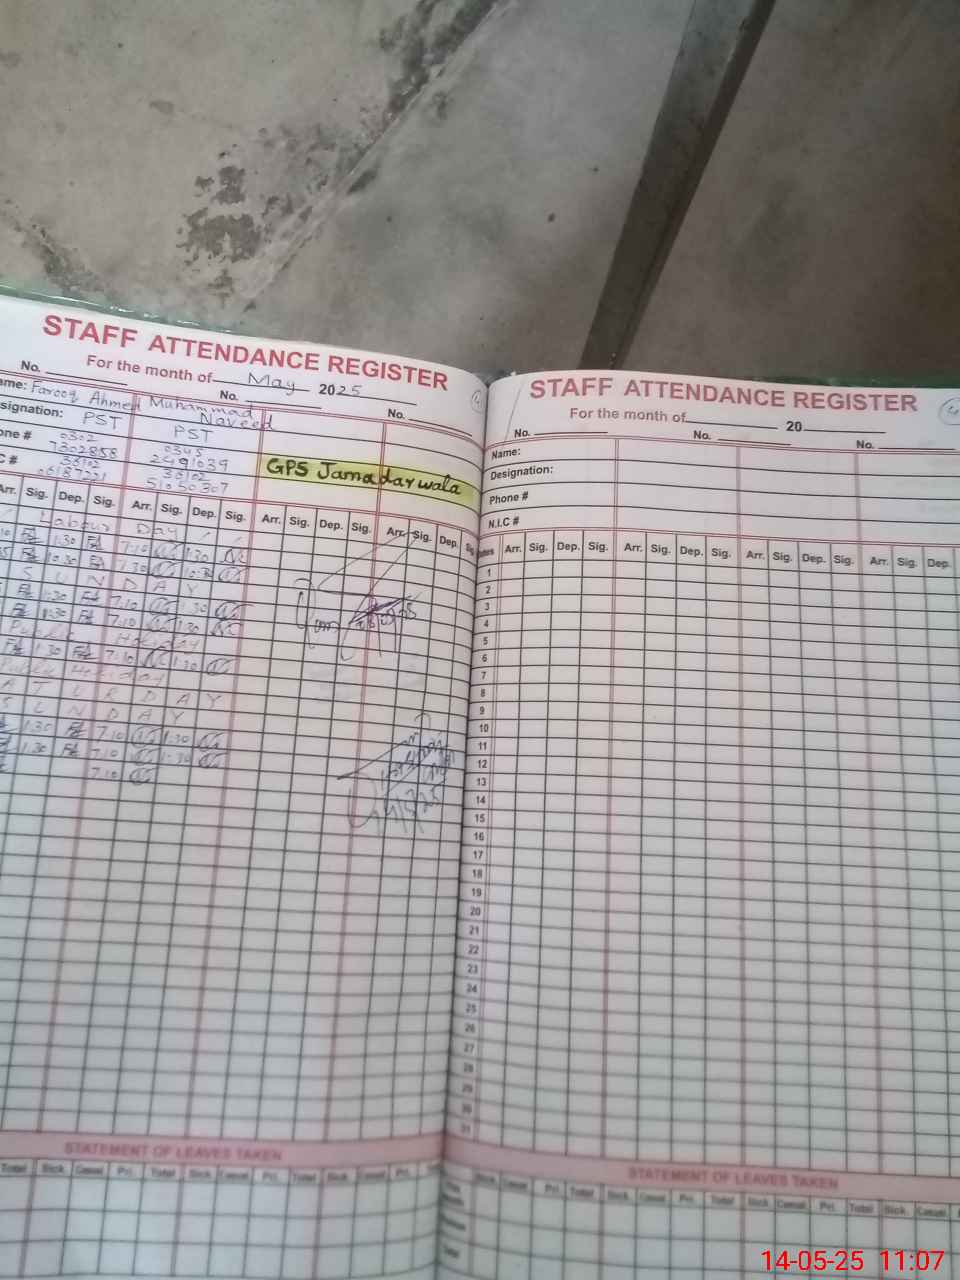 STAFF ATTENDANCE REGISTER
For the month of May 2025
No. No. No.
Name: Farooq Ahmed Muhammad Naveed
Designation: PST PST
Phone # 0302 7302858 0345 2491039
GPS Jamadarwala
Arr. Sig. Dep. Sig. Arr. Sig. Dep. Sig. Arr. Sig. Dep. Sig. Arr. Sig. Dep.
Labour Day
1:30 7:10 1:30
10:30 7:30
S U N D A Y
1:30 7:10 1:30
1:30 7:10 1:30
Public Holiday
1:30 7:10 1:30
Public Holiday
A T U R D A Y
S U N D A Y
1:30 7:10 1:30
1:30 7:10 1:30
7:10
STATEMENT OF LEAVES TAKEN
Total Sick. Casual Pri. Total Sick. Casual Pri. Total Sick. Casual Pri.
STAFF ATTENDANCE REGISTER
For the month of 20
No. No. No.
Name:
Designation:
Phone #
N.I.C #
Dates Arr. Sig. Dep. Sig. Arr. Sig. Dep. Sig. Arr. Sig. Dep. Sig. Arr. Sig. Dep.
1
2
3
4
5
6
7
8
9
10
11
12
13
14
15
16
17
18
19
20
21
22
23
24
25
26
27
28
29
30
31
STATEMENT OF LEAVES TAKEN
Sick. Casual Pri. Total Sick. Casual Pri. Total Sick. Casual Pri. Total Sick. Casual
14-05-25 11:07